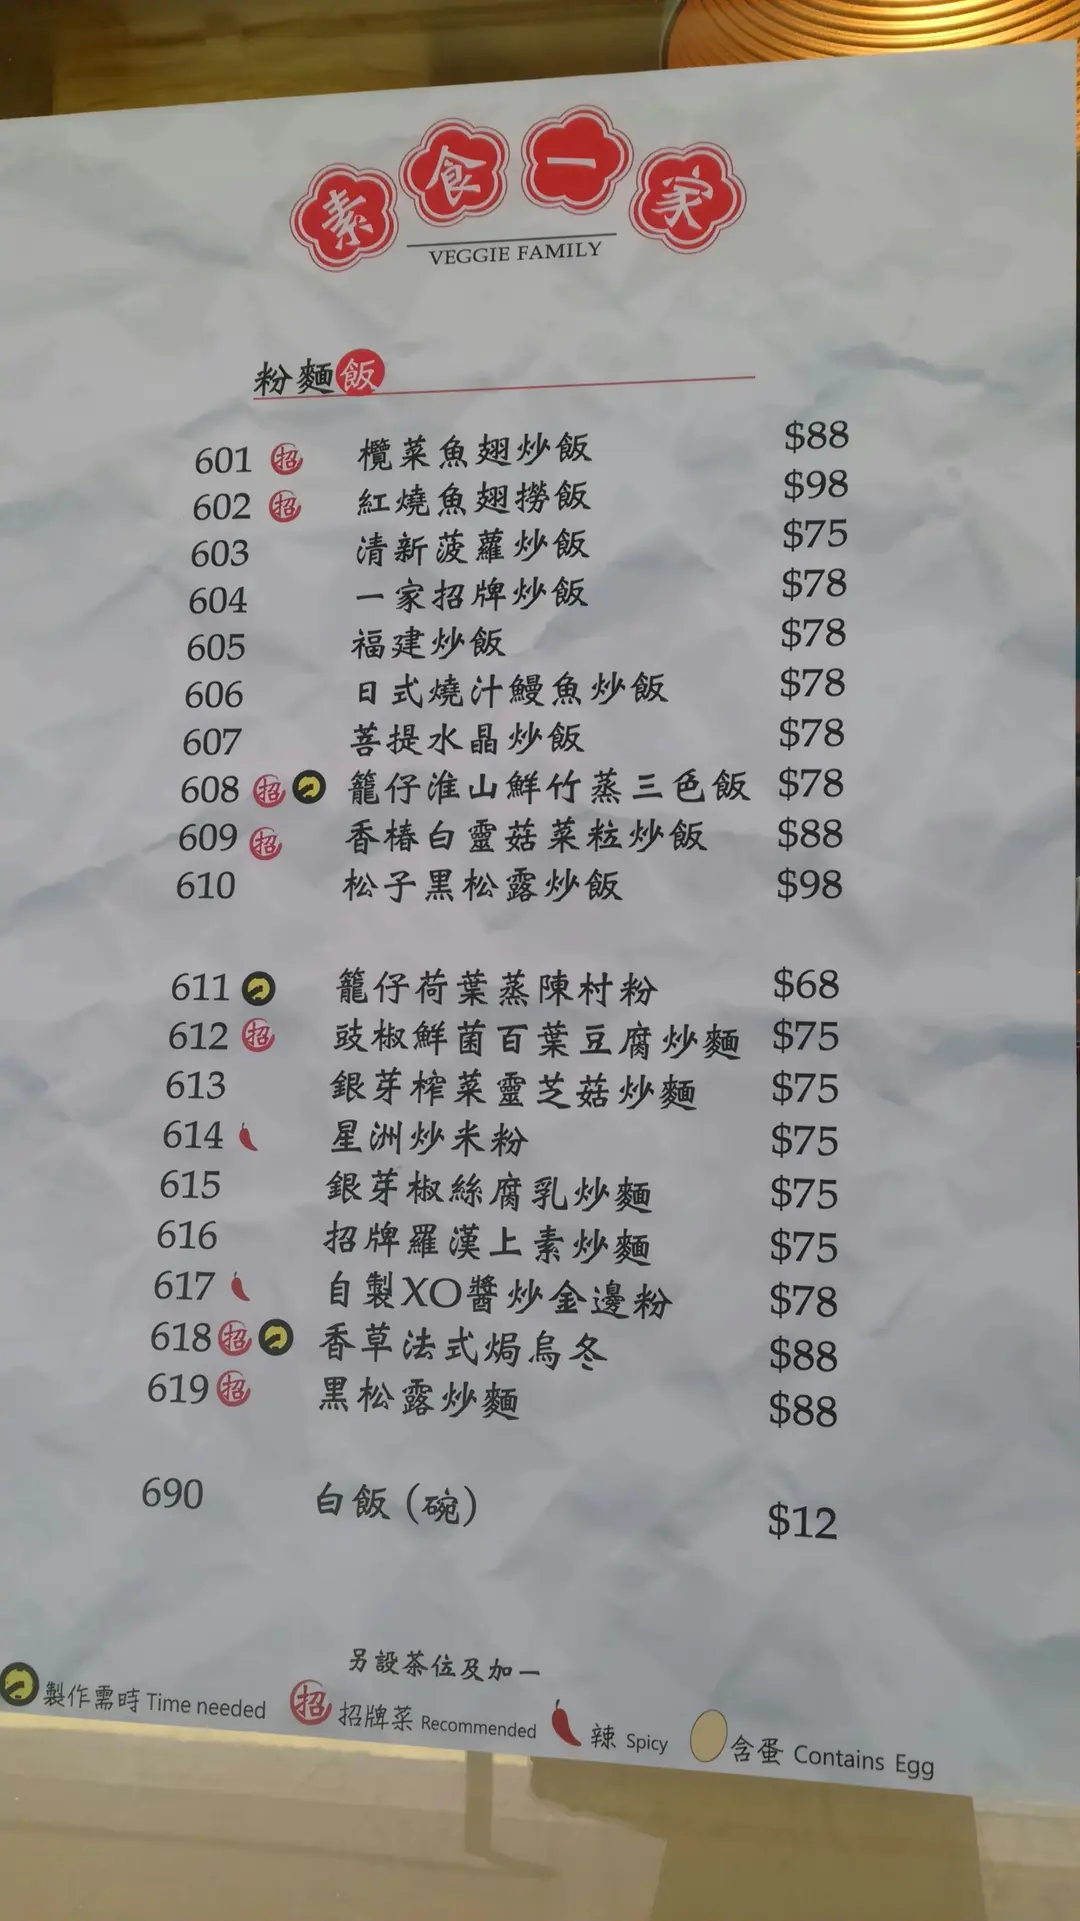 素食一家
VEGGIE FAMILY
粉麵飯
601 招 欖菜魚翅炒飯 $88
602 招 紅燒魚翅撈飯 $98
603 清新菠蘿炒飯 $75
604 一家招牌炒飯 $78
605 福建炒飯 $78
606 日式燒汁鰻魚炒飯 $78
607 菩提水晶炒飯 $78
608 招 籠仔淮山鮮竹蒸三色飯 $78
609 招 香椿白靈菇菜粒炒飯 $88
610 松子黑松露炒飯 $98
611 籠仔荷葉蒸陳村粉 $68
612 招 豉椒鮮菌百葉豆腐炒麵 $75
613 銀芽榨菜靈芝菇炒麵 $75
614 星洲炒米粉 $75
615 銀芽椒絲腐乳炒麵 $75
616 招牌羅漢上素炒麵 $75
617 自製XO醬炒金邊粉 $78
618 招 香草法式焗烏冬 $88
619 招 黑松露炒麵 $88
690 白飯 (碗) $12
另設茶位及加一
製作需時 Time needed 招 招牌菜 Recommended 辣 Spicy 含蛋 Contains Egg